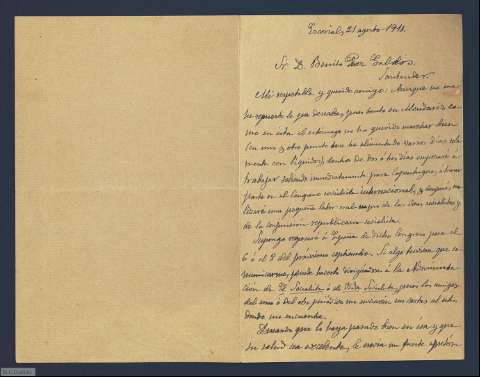 Escorial, 21 agosto 1910.
Sr. D. Benito Pérez Galdós.
Santander.
Mi respetable y querido amigo: Aunque no me
he repuesto lo que deseaba, pues tanto en Mondariz co-
mo en esta el estómago no ha querido marchar bien
(en uno y otro punto me he alimentado varios días sola-
mente con líquidos), dentro de dos ó tres días empezaré á
trabajar saliendo inmediatamente para Copenhague, á tomar
parte en el Congreso socialista internacional, y después, re-
alizar una pequeña labor en favor de las ideas socialistas y
de la conjunción republicano socialista.
Supongo regresaré á España de dicho Congreso para el
6 ó el 8 del próximo septiembre. Si algo tuviera que co-
municarme, puede hacerlo dirigiéndose á la Administra-
ción de El Socialista ó de Vida Socialista, pues los amigos
del uno ó del otro periódico me enviarán sus cartas al sitio
donde me encuentre.
Deseando que lo haya pasado bien en esa y que
su salud sea excelente, le envía un fuerte apretón